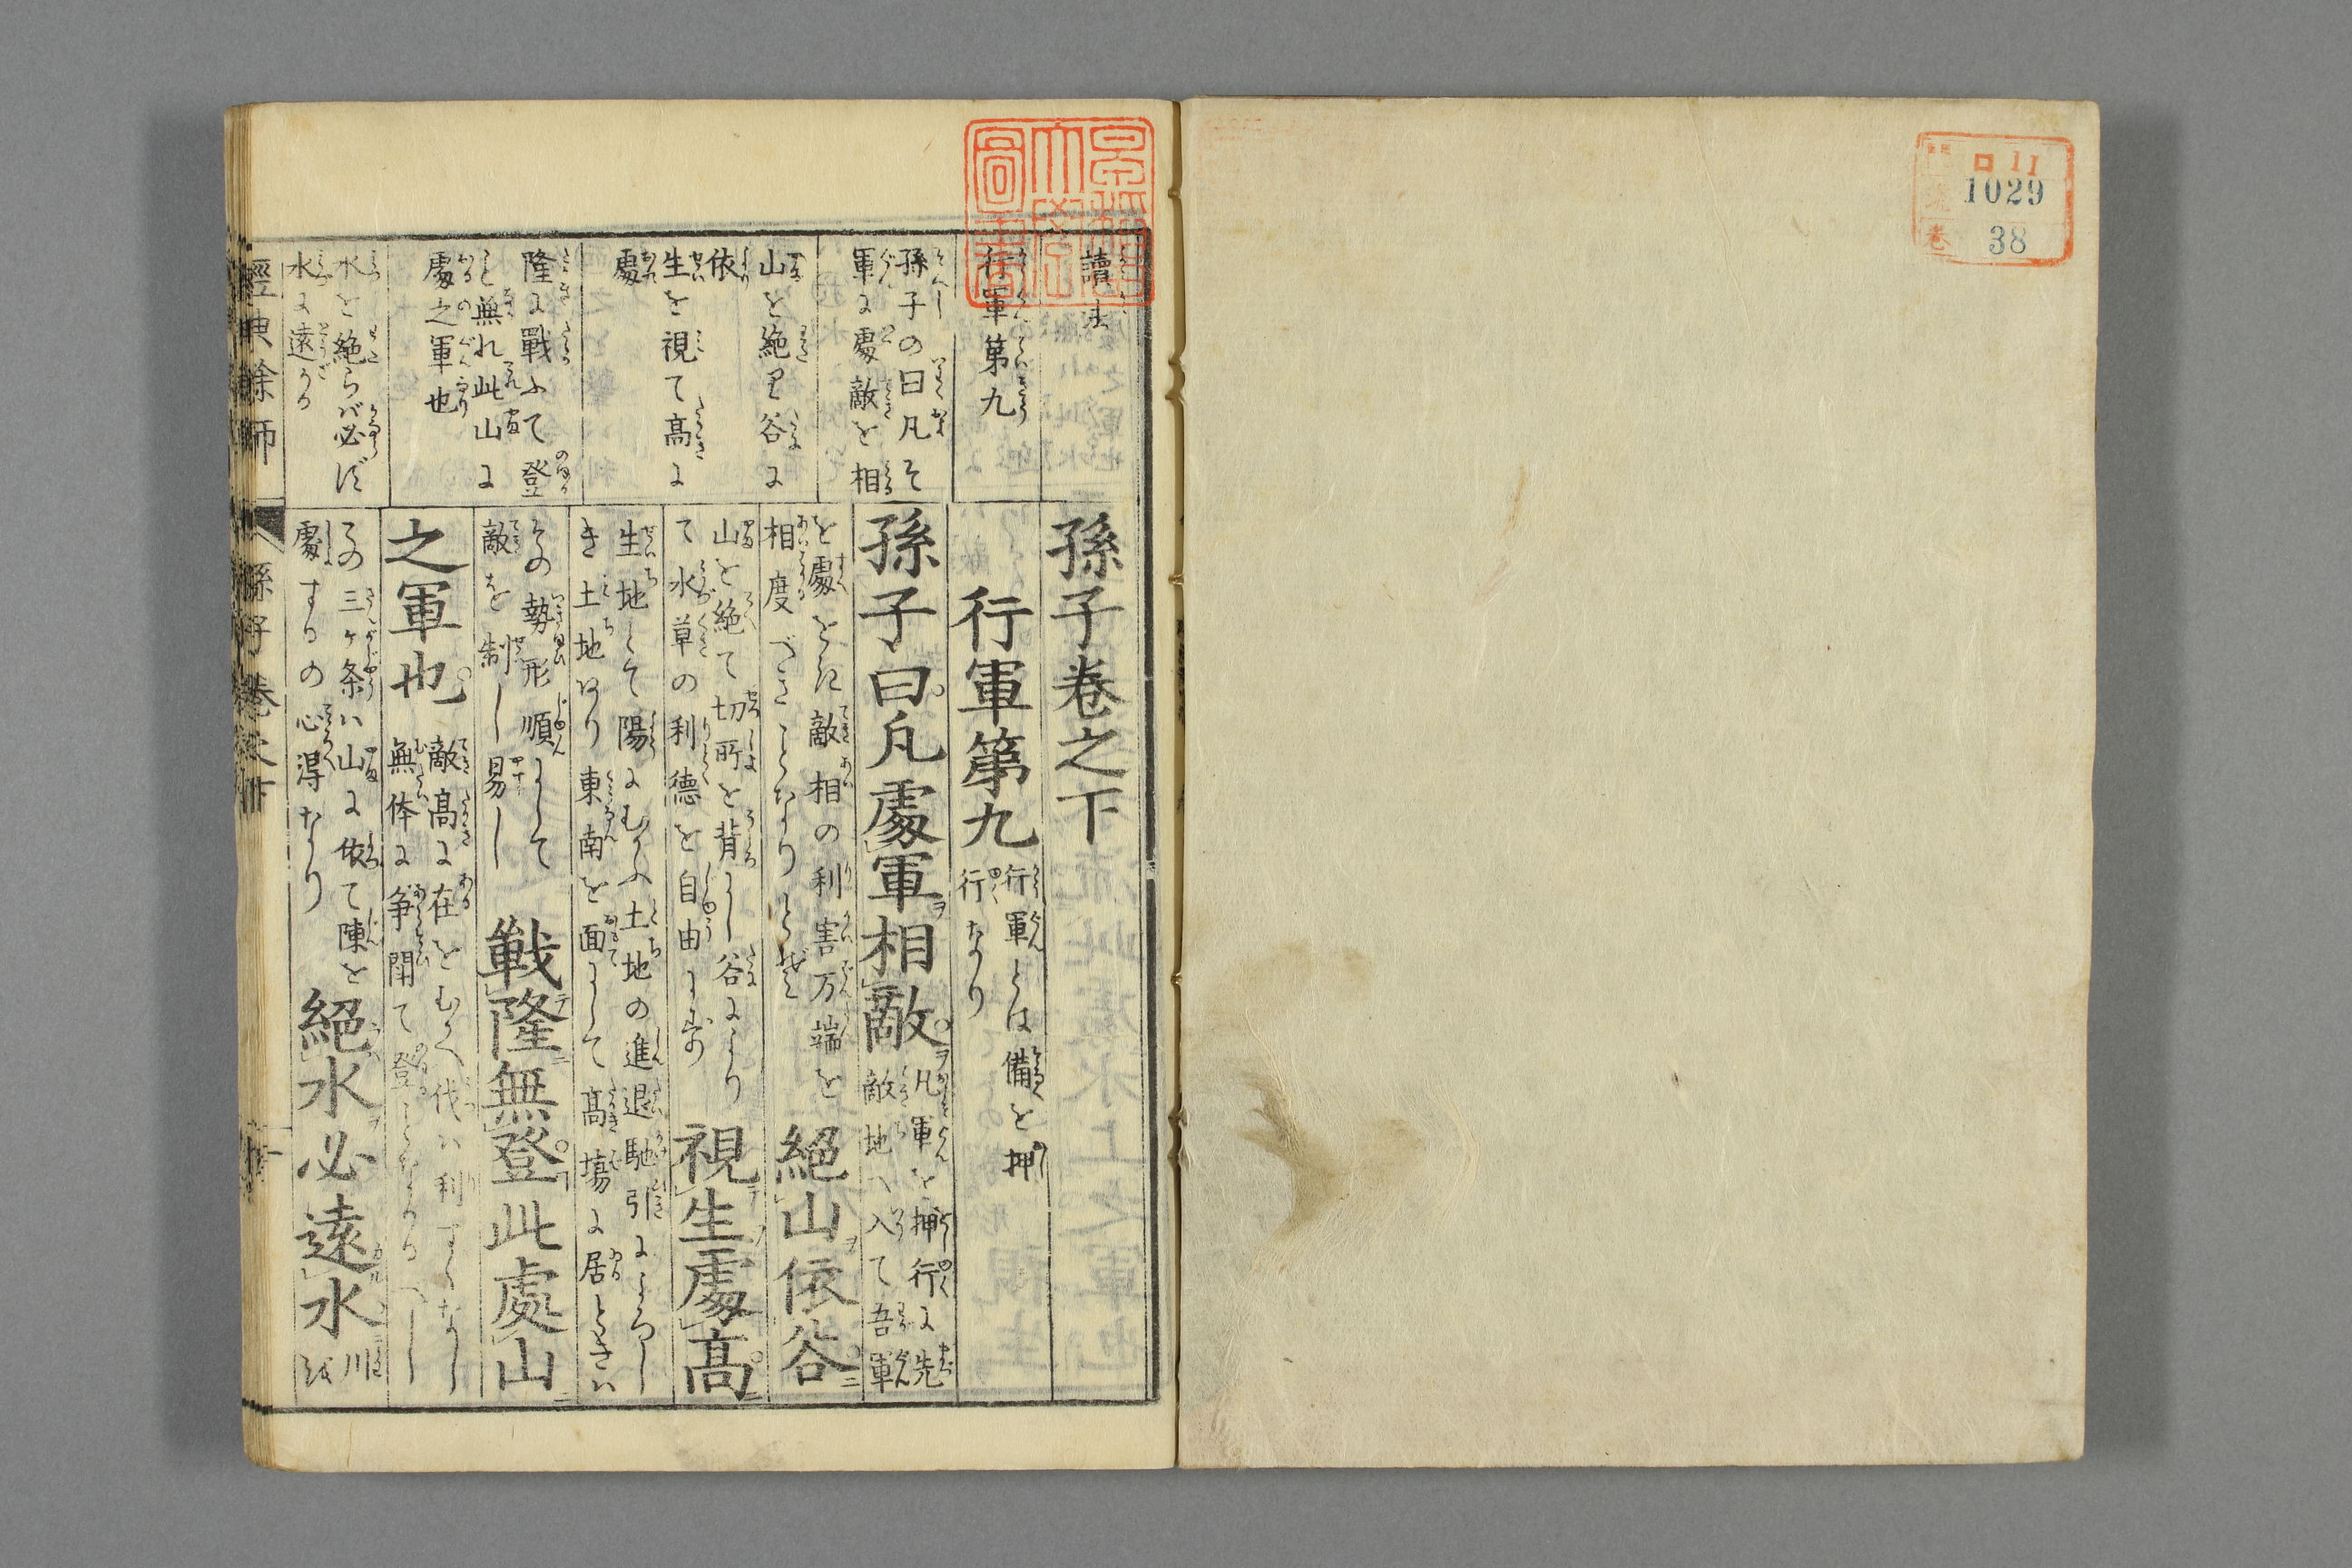 ロ 11
1029
38
巻
讀法
行軍第九
孫子の曰凡そ
軍に處敵を相
山を絶り谷に
依
生を視て髙に
處
隆に戰ふて登
こと無れ此山に
處之軍也
水を絶らば必ず
水に遠かる
孫子巻之下
行軍第九
行軍とは備を押
行なり
孫子曰凡處軍相敵
凡軍を押行に先
敵地へ入て吾軍
を處をえ敵相の利害万端を
相度べきことなりとぞ
絕山依谷
山を絶て切所を背にし谷により
て水草の利德を自由にす
視生處髙
生地とて陽にむかふ土地の進退馳引によろし
き土地あり東南を面にして髙塲に居ときハ
その勢形順にして
敵を制し易し
戰隆無登此處山
之軍也
敵髙に在をむかへ伐ハ利すくなし
無体に争鬪て登ことなかるべし
この三ヶ条ハ山に依て陳を
處するの心得なり
絕水必遠水
川
經典餘師
孫子巻之下
一